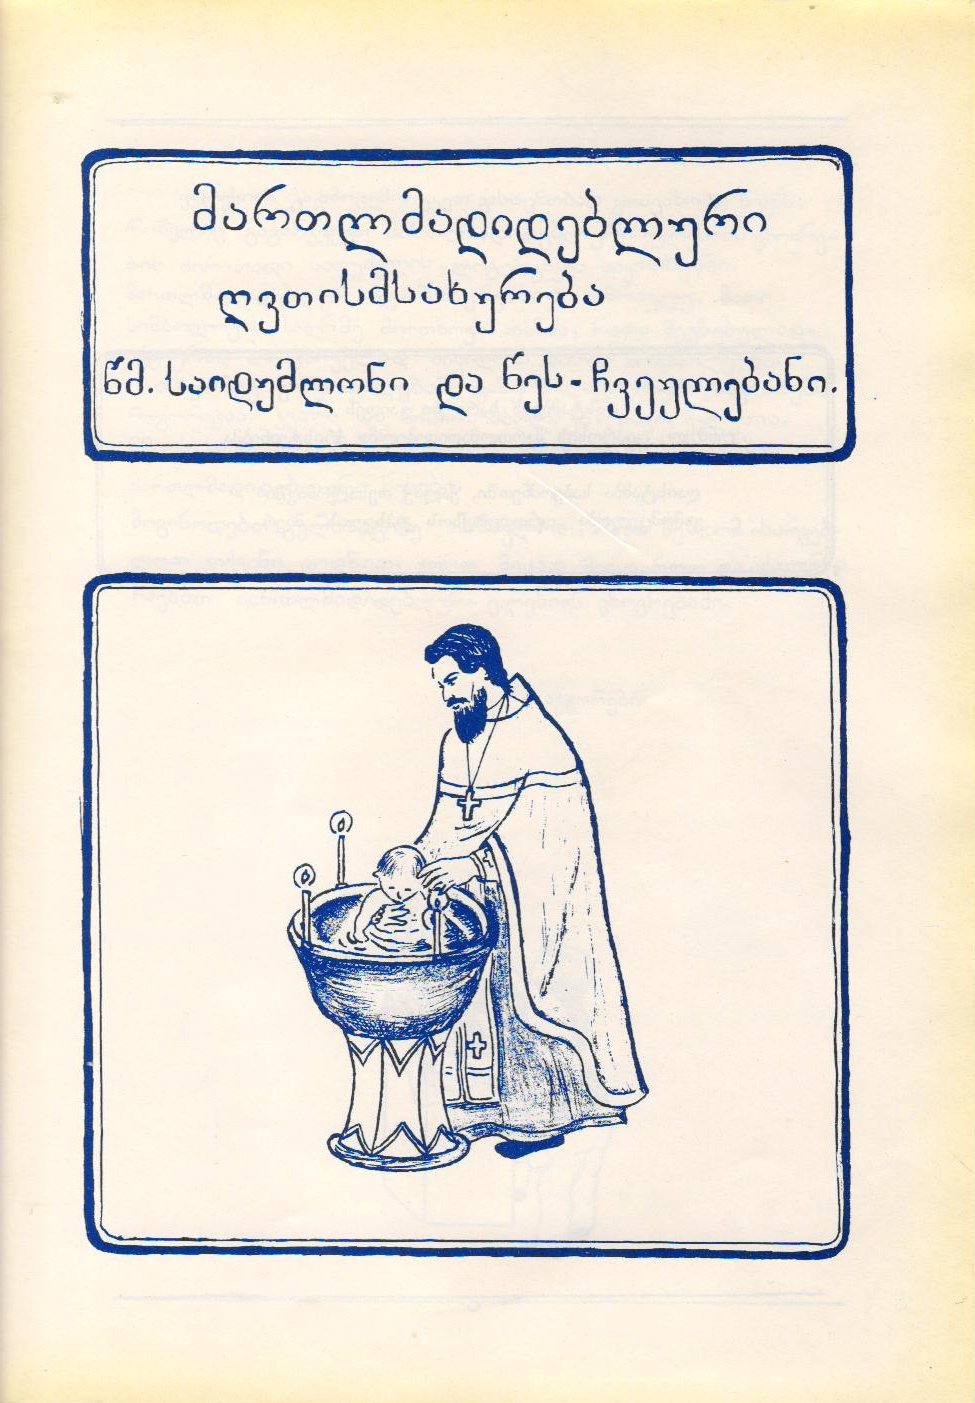 მართლმადიდებლური
ღვთისმსახურება
წმ. საიდუმლონი და წეს-ჩვეულებანი.